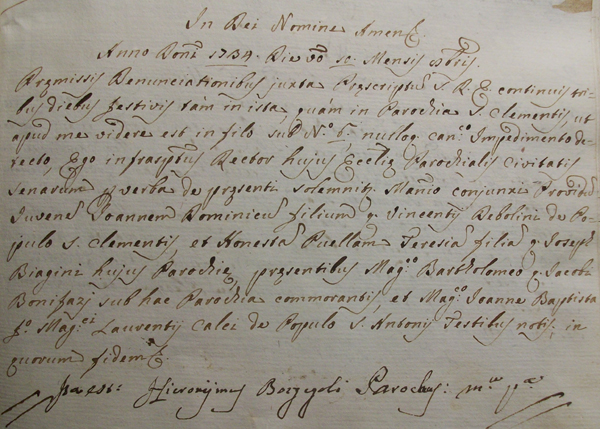 In Dei Nomine Amen
Anno Domi 1734. Die vo 10. Mensis 8bris
Præmissis Denunciationibus juxta Præscriptu S. R. E. continuis tri-
bus diebus festivis tam in ista, quam in Parochia S. Clementis, ut
apud me videre est in filo sub No 6: nulloq. can.co Impedimento de-
tecto, Ego infrascptus Rector hujus Ecclię Parochialis Civitatis
Senarum p verba de præsenti solemnitr. Mãnio conjunxi Provitd
Juvene Joannem Dominicu filium q. Vincentij Debolini de Po-
pulo S. Clementis, et Honesta Puellam Teresia filia q. Joseph
Biagini hujus Parochię, præsentibus Mag.o Bartholomeo q. Jacobi
Bonifazj sub hac Parochia commorantis, et Mag.o Joanne Baptista
fo Mag.ci Laurentij Calci de Populo S. Antonij Testibus notis, in
quorum fidem
Ita est: Hieronymus Parochus: mu pa